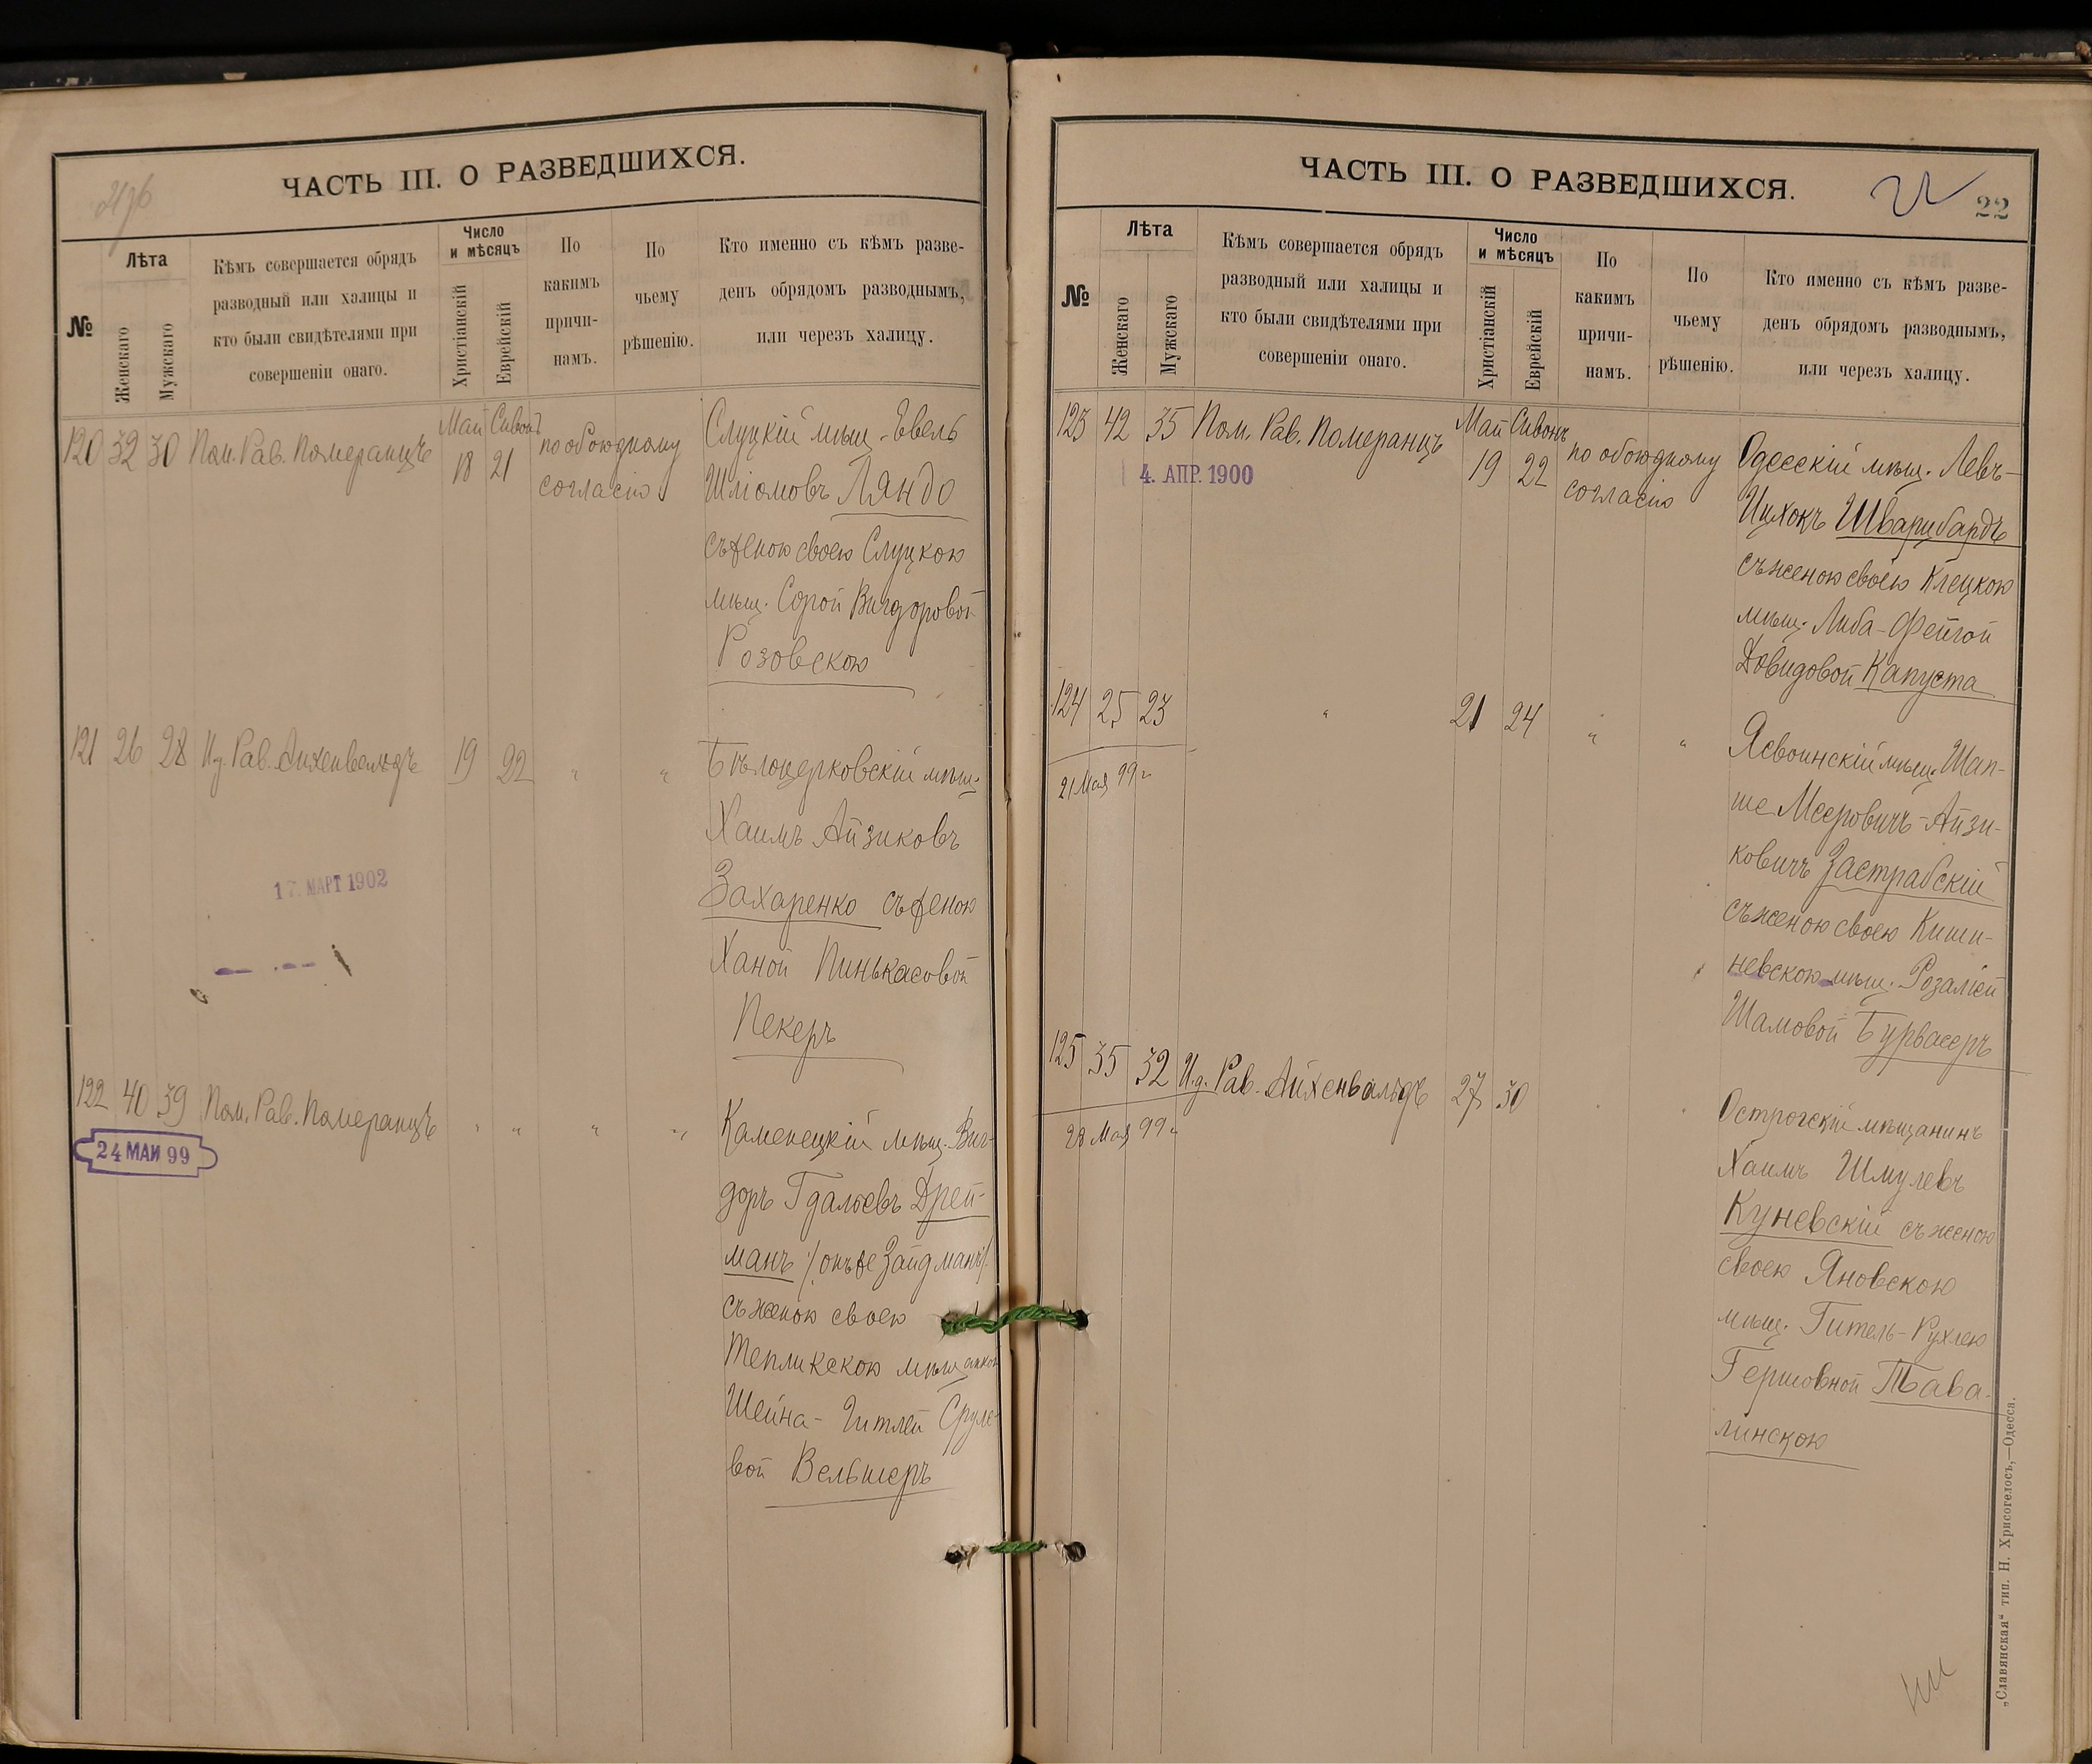 ЧАСТЬ III. О РАЗВЕДШИХСЯ.
№
Лѣта
Женскаго
Мужскаго
Кѣмъ совершается обрядъ
разводный или халицы и
кто были свидѣтелями при
совершеніи онаго.
Число
и мѣсяцъ
Христіанскій
Еврейскій
По
какимъ
причи-
намъ.
По
чьему
рѣшенію.
Кто именно съ кѣмъ разве-
денъ обрядомъ разводнымъ,
или черезъ халицу.
120 32 30 Пом. Рав. Померанцъ
Май Сивонъ
18 21
по обоюдному
согласію
Слуцкій мѣщ. Евель
Шліомовъ Ляндо
съ женою своею Слуцкою
мѣщ. Сорой Вигдоровой
Розовскою
121 26 28 И.д. Рав. Айхенвальдъ 19 22 " "
Бѣлоцерковскій мѣщ.
Хаимъ Айзиковъ
Захаренко съ женою
Ханой Пинькасовой
Пекеръ
17. МАРТ 1902
122 40 39 Пом. Рав. Померанцъ " " " "
24 МАИ 99
Каменецкій мѣщ. Виг-
доръ Гдальевъ Дрей-
манъ /онъ же Зайдманъ/.
съ женою своею
Тепликскою мѣщанкою
Шейна-Гитлей Сруле-
вой Вельшеръ
ЧАСТЬ III. О РАЗВЕДШИХСЯ.
22
№
Лѣта
Женскаго
Мужскаго
Кѣмъ совершается обрядъ
разводный или халицы и
кто были свидѣтелями при
совершеніи онаго.
Число
и мѣсяцъ
Христіанскій
Еврейскій
По
какимъ
причи-
намъ.
По
чьему
рѣшенію.
Кто именно съ кѣмъ разве-
денъ обрядомъ разводнымъ,
или черезъ халицу.
123 42 35 Пом. Рав. Померанцъ
4. АПР. 1900
Май Сивонъ
19 22
по обоюдному
согласію
Одесскій мѣщ. Левъ-
Ицхокъ Шварцбардъ
съ женою своею Клецкою
мѣщ. Либа-Фейгой
Довидовой Капуста
124 25 23 " 21 24 " "
21 Мая 99 г.
Ясвоинскій мѣщ. Шап-
ше Мееровичъ-Айзи-
ковичъ Застрабскій
съ женою своею Киши-
невскою мѣщ. Розаліей
Шамовой Бурвасеръ
125 35 32 И.д. Рав. Айхенвальдъ 27 30
28 Мая 99 г.
Острогскій мѣщанинъ
Хаимъ Шмулевъ
Куневскій съ женою
своею Яновскою
мѣщ. Гитель-Рухлею
Гершовной Тава-
линскою
„Славянская“ тип. Н. Хрисогелосъ,—Одесса.